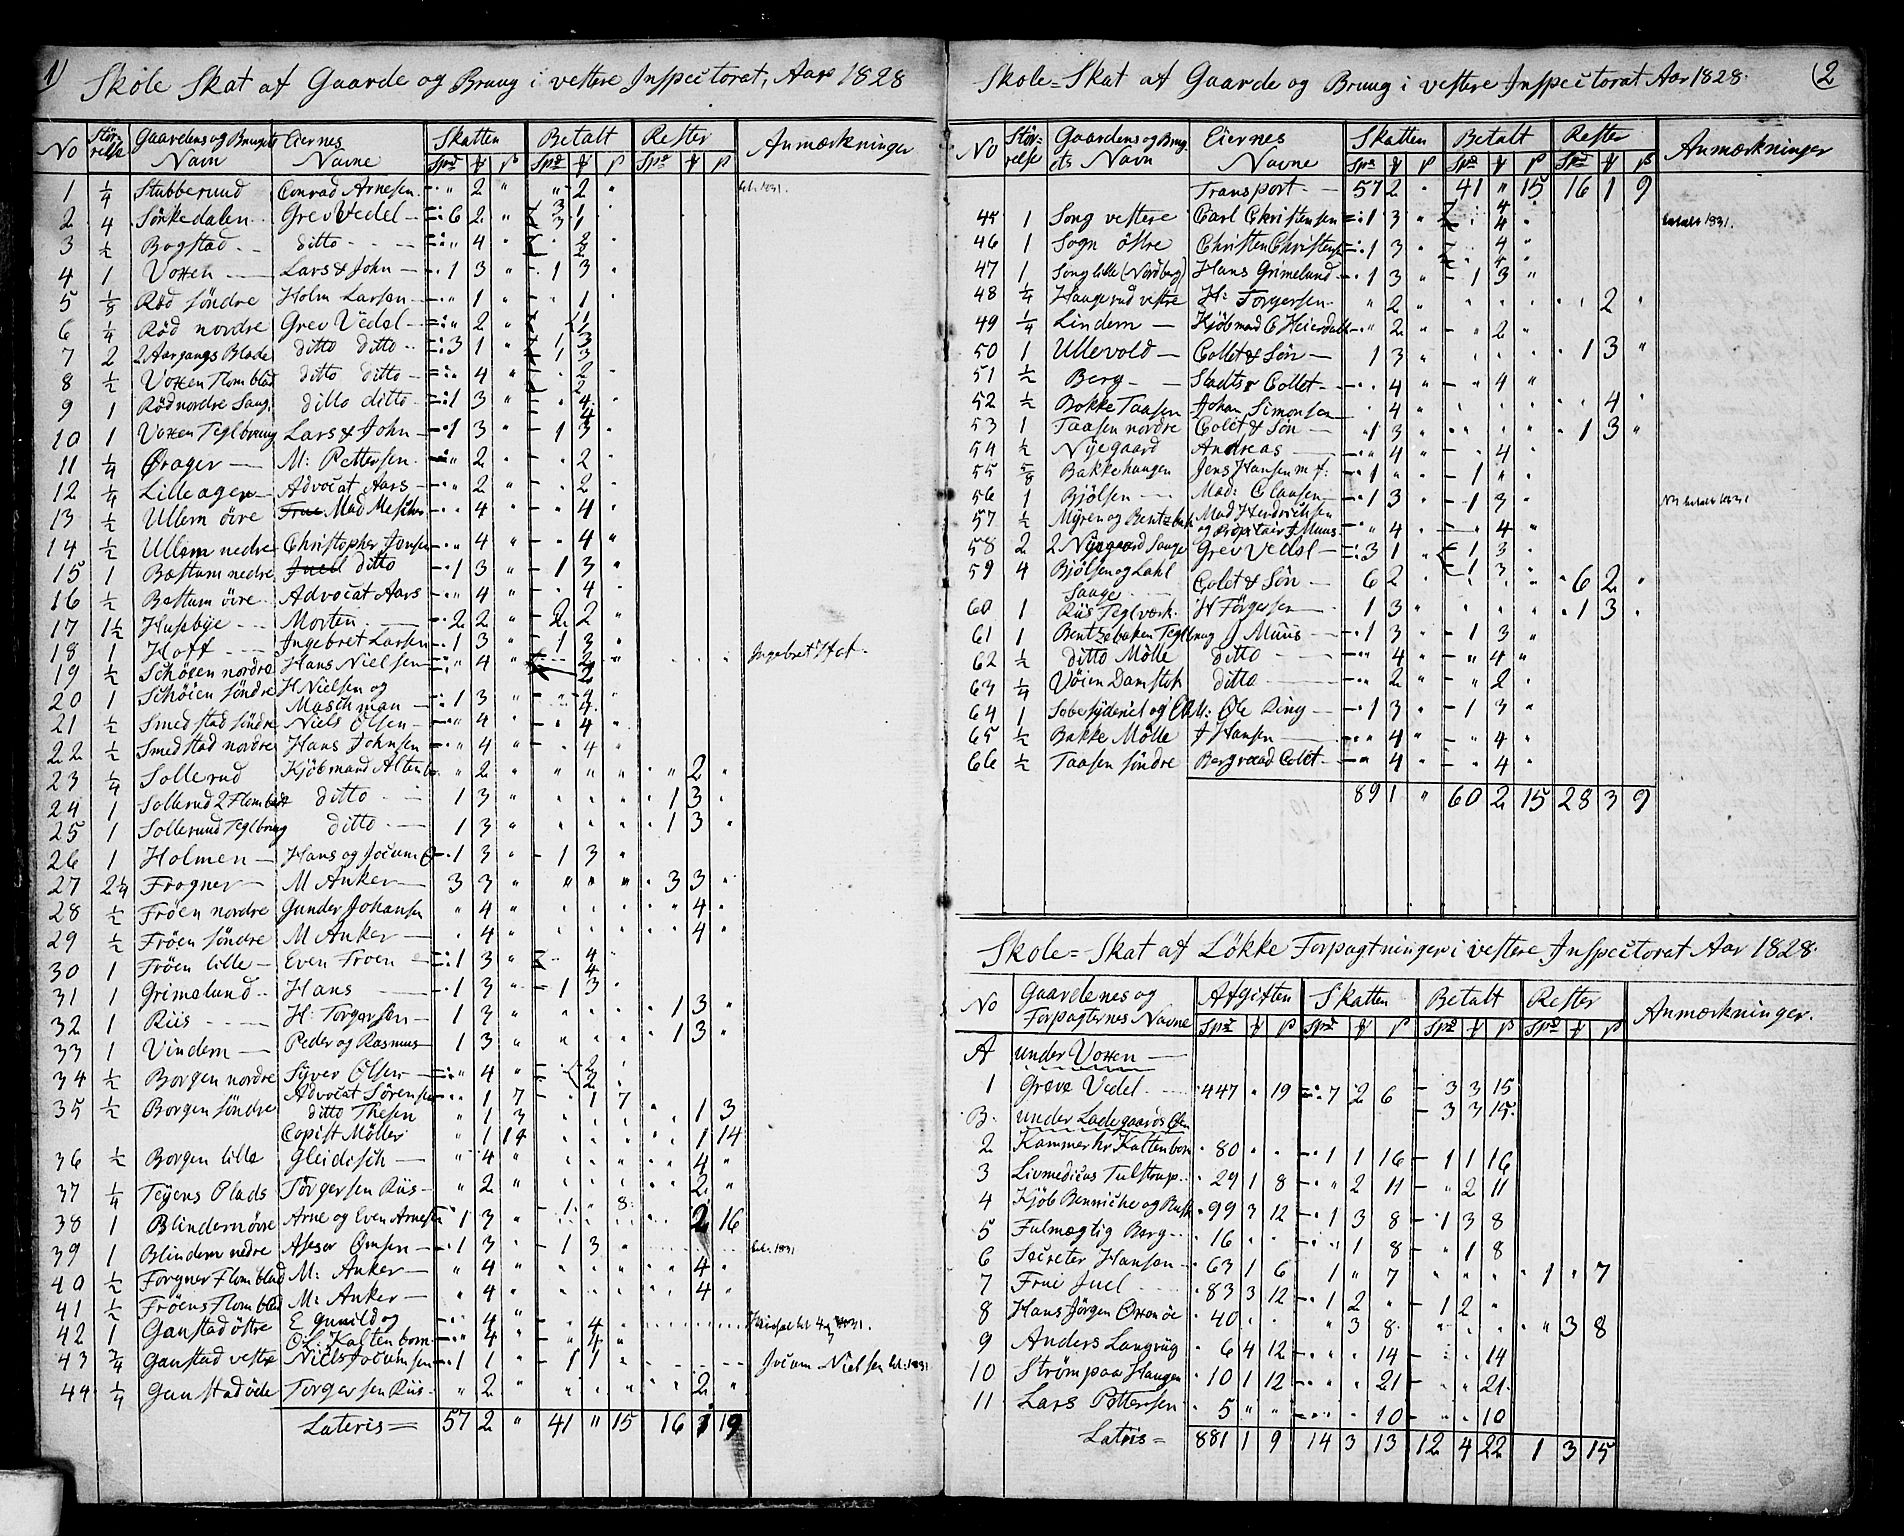 1) Skole Skat af Gaarde og Bruug i vestere Inspectorat, Aar 1828
No Stör- Gaardens og Bruugets Eiernes Skatten Betalt Rester Anmærkninger
relse Navn Navne Spd ɣ β Spd ɣ β Spd ɣ β
1 1/4 Stubberud Conrad Arnesen " 2 " " 2 "
2 4 Sörkedalen Grev Vedel 6 2 " 3 1
3 1/2 Bogstad ditto " 4 " 2
4 1 Voxen Lars & John 1 3 " 1 3 "
5 Röd söndre Holm Larsen " 1 " " 1 "
6 1/4 Röd nordre Grev Vedel " 2 "
7 2 2 Aargangs Blade ditto ditto 3 1 " 1 3
8 1/2 Voxen Flomblad ditto ditto " 4 " 2
9 1 Röd nordre Saug ditto ditto 1 3 " 4
10 1 Voxen Teglbruug Lars & John 1 3 " 1 3 "
11 1/4 Örager M: Pettersen " 2 " 2 "
12 1/4 Lilleager Advocat Aars " 2 " 2 "
13 1/2 Ullern övre Frue Mad " 4 " 4 "
14 1/2 Ullern nedre Christopher Jonsen " 4 " 4 "
15 1 Bestum nedre Juell ditto 1 3 " 1 3 "
16 1/2 Bestum övre Advocat Aars " 4 " 4 "
17 1 1/2 Husebye Morten 2 2 " 2 2 "
18 1 Hoff Ingebret Larsen 1 3 " 1 3 " Ingebret
19 1/2 Schöien nordre Hans Nielsen " 4 " 2
20 1 Schöien söndre H Nielsen og
Maschman 1 3 " 4
21 1/2 Smedstad söndre Niels Olsen " 4 " 4
22 1/2 Smedstad nordre Hans Johnsen " 4 " 4
23 1/4 Sollerud Kjöbmand " 2 " " " " " 2 "
24 1 Sollerud 2 Flomblade ditto 1 3 " " " " 1 3 "
25 1 Sollerud Teglbruug ditto 1 3 " " " " 1 3 "
26 1 Holmen Hans og Jocum 1 3 " 1 3 "
27 2 1/4 Frogner M Anker 3 3 " " " " 3 3 "
28 1/2 Fröen nordre Gunder Johansen " 4 " " " " " 4 "
29 1/2 Fröen söndre M Anker " 4 " " " " " 4 "
30 1 Fröen lille Even Froen 1 3 " 4
31 1 Grimelund Hans 1 3 " 1 3 "
32 1 Riis H: Torgersen 1 3 " " " " 1 3 "
33 1 Vindern Peder og Rasmus 1 3 " " " " 1 3 "
34 1/2 Borgen nordre Syver Olsen " 4 " 2
Advocat Sörensen " 1 7 " 1 7
35 1/2 Borgen söndre ditto Thesen " 1 3 " " " " 1 3
Copist Möller " 1 14 " " " " 1 14
36 1/2 Borgen lille Gleidisch " 4 " " " " " 4 "
37 1/4 Teyens Plads Törgersen Riis " 2 " " " " " 2 "
38 1 Blindern övre Arne og Even Arnesen 1 3 " 1 " 8 " 2 16
39 1 Blindern nedre Asesor Omsen 1 3 " 1 3 " bet. 1831
40 1/2 Forgner Flomblad M: Anker " 4 " " " " " 4 "
41 1/2 Fröens Flomblad M: Anker " 4 " " " " " 4 "
42 1 Gaustad östre E Gunild og " 4 " 4
O: L: Kaltenborn " 4 " 4
43 3/4 Gaustad vestre Niels Jocumsen 1 1 " 1 1 " Jocum Nielsen bet. 1831
44 1/4 Gaustad öde Torgersen Riis " 2 " " " " " 2 "
Lateris = 57 2 " 41 " 15 16 1 19
Skole=Skat af Gaarde og Bruug i vestere Inspectorat Aar 1828. (2
No Stör- Gaardens og Brug- Eiernes Skatten Betalt Rester Anmærkninger
relse ets Navn Navne Spd ɣ β Spd ɣ β Spd ɣ β
Transport 57 2 " 41 " 15 16 1 9
45 1 Song vestere Carl Christensen 1 3 " 4 betalt 1831.
46 1 Sogn östre Christen Christens 1 3 " 4
47 1 Song lille (Nordberg) Hans Grimelund 1 3 " 1 3 "
48 1/4 Haugerud vestre H: Torgersen " 2 " " " " " 2 "
49 1/4 Lindern Kjöbmad C Heierdahl " 2 " " 2 "
50 1 Ullevold Collet & Sön 1 3 " " " " 1 3 "
51 1/2 Berg Stadts Collet " 4 " " 4 "
52 1/2 Bokke Taasen Johan Simonsen " 4 " " " " " 4 "
53 1 Taasen nordre Colet & Sön 1 3 " " " " 1 3 "
54 1/2 Nyegaard Andreas " 4 " " 4 "
55 5/8 Bakkehaugen Jens Hansen m f: 1 " " 1 " "
56 1 Bjölsen Mad: Clausen 1 3 " 1 3 " betalt 1831
57 1/2 Myren og Bentzebak Mad Hendrichsen
og J Muus " 4 " " 4 "
58 2 2 Nyegaard Sauge Grev Vedel 3 1 " 1 3 "
59 4 Bjölsen og Lahl 1 3 "
Sauge Colet & Sön 6 2 " " " " 6 2 "
60 1 Riis Teglværk H Törgersen 1 3 " " " " 1 3 "
61 1 Bentzebaken Teglbrug J Muus 1 3 " 1 3 "
62 1/2 ditto Mölle ditto " 4 " " 4 "
63 1/4 Vöien Damstok ditto " 2 " " 2 "
64 1 M: Ole Ring 1 3 " 1 3 "
65 1/2 Bakke Mölle J Hansen " 4 " " 4 "
66 1/2 Taasen söndre Bergraad Colet " 4 " " 4 "
89 1 " 60 2 15 28 3 9
Skole=Skat af Lökke Forpagtninger i vestere Inspectorat Aar 1828.
No Gaardenes og Afgiften Skatten Betalt Rester Anmærkninger.
Forpagternes Navne Spd ɣ β Spd ɣ β Spd ɣ β Spd ɣ β
A under Voxen
1 Greve Vedel 447 " 19 7 2 6 3 3 15
B. under Ladegaards Öen 3 3 15
2 Kammerhr Kaltenborn 80 " " 1 1 16 1 1 16
3 Livmedicus Tulstrup 29 1 8 " 2 11 " 2 11
4 Kjöb Benniche og 99 3 12 1 3 8 1 3 8
5 Fulmægtig Berg 16 " " " 1 8 " 1 8
6 Secreter Hansen 63 1 6 1 " 7 " " " 1 " 7
7 Frue Juel 83 3 12 1 2 " 1 2 "
8 Hans Jörgen Oxenöe 40 " " " 3 8 " " " " 3 8
9 Anders Langviig 6 4 12 " " 14 " " 14
10 Strömpaa Haugen 10 1 12 " " 21 " " 21
11 Lars Pettersen 5 " " " " 10 " " 10
Latris = 881 1 9 14 3 13 12 4 22 1 3 15